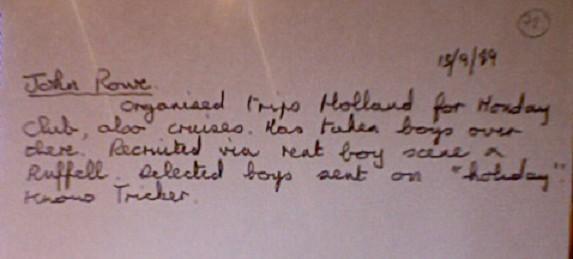 71
15/9/89
John Rowe.
Organised trips Holland for Monday
Club, also cruises. Has taken boys over
there. Recruited via rent boy scene &
Ruffell. Selected boys sent on "holiday".
Knows Tricker.